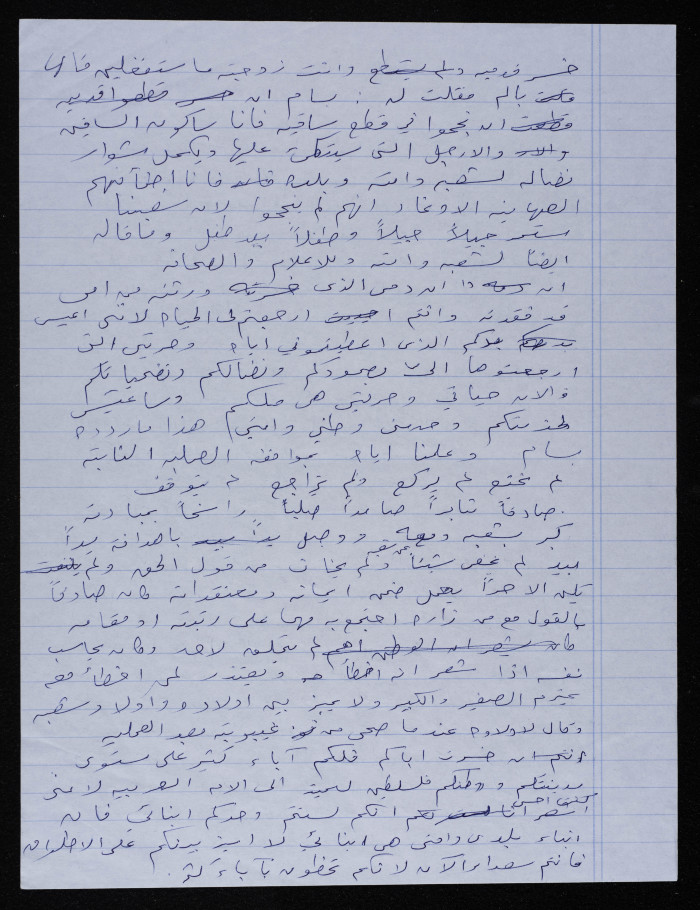 خسر قدميه ولم يستطع وانت زوجته ما ستفعلين فانها
قالت بالم فقلت له : بسام ان خسر قطعوا قدميه
قطعت ان نجحوا في قطع ساقيه فانا ساكون الساقين
والارجل التي سيتكئ عليها ويكمل مشوار
نضاله لشعبه وامته وبلده فانا اجبتهم
الصهاينه الاوغاد انهم لم ينجحوا لان شعبنا
مستمر جيلاً جيلاً وطفلاً بعد طفل وما قاله
ايضاً لشعبه وامته وللاعلام والصحافه
ان دمي الذي خسرته ورثته من امي
قد فقدته وانتم ارجعتم لي الحياه لانني اعيش
بدمكم الذي اعطيتموني اياه وحريتي التي
ارجعتوها الي بصمودكم ونضالكم وتضحياتكم
فالان حياتي وحريتي هي ملككم وساعيش
لخدمتكم وخدمة وطني وامتي) هذا ما ردده
بسام وعلمنا اياه بمواقفه الصلبه الثابته
لم يخنع لم يركع ولم يتراجع لم يتوقف
صادقاً مثابراً صامداً صلباً راسخاً بمبادئه
كبر بشعبه ومعه ووصل باهدافه يداً
بيد لم يخفي شيئاً عن شعبه ولم يخاف من قول الحق ولم
يكن الا حراً يعمل ضمن ايمانه ومعتقداته كان صادقاً
بالقول مع من زاره اجتمع به مهما علي رتبته او مقامه
كان يشعر ان الوطن اهم لم يتملق لاحد وكان يحاسب
نفسه اذا شعر انه اخطأ ويعتذر لمن اخطأ معه
يحترم الصغير والكبير ولا يميز بين اولاده واولاد شعبه
وقال لاولاده عندما صحى من غيبوبته بعد العمليه
ان خسرت اباكم فلكم آباء كثير على مستوى
مدينتكم ووطنكم فلسطين لميت الى الامه العربيه لانني
كنت احس انكم لستم وحدكم ابنائي فان
ابناء بلدي وامتي هم ابنائي لا اميز بينكم على الاطلاق
فانتم سعداء الان لانكم تحظون بآباء كثر.